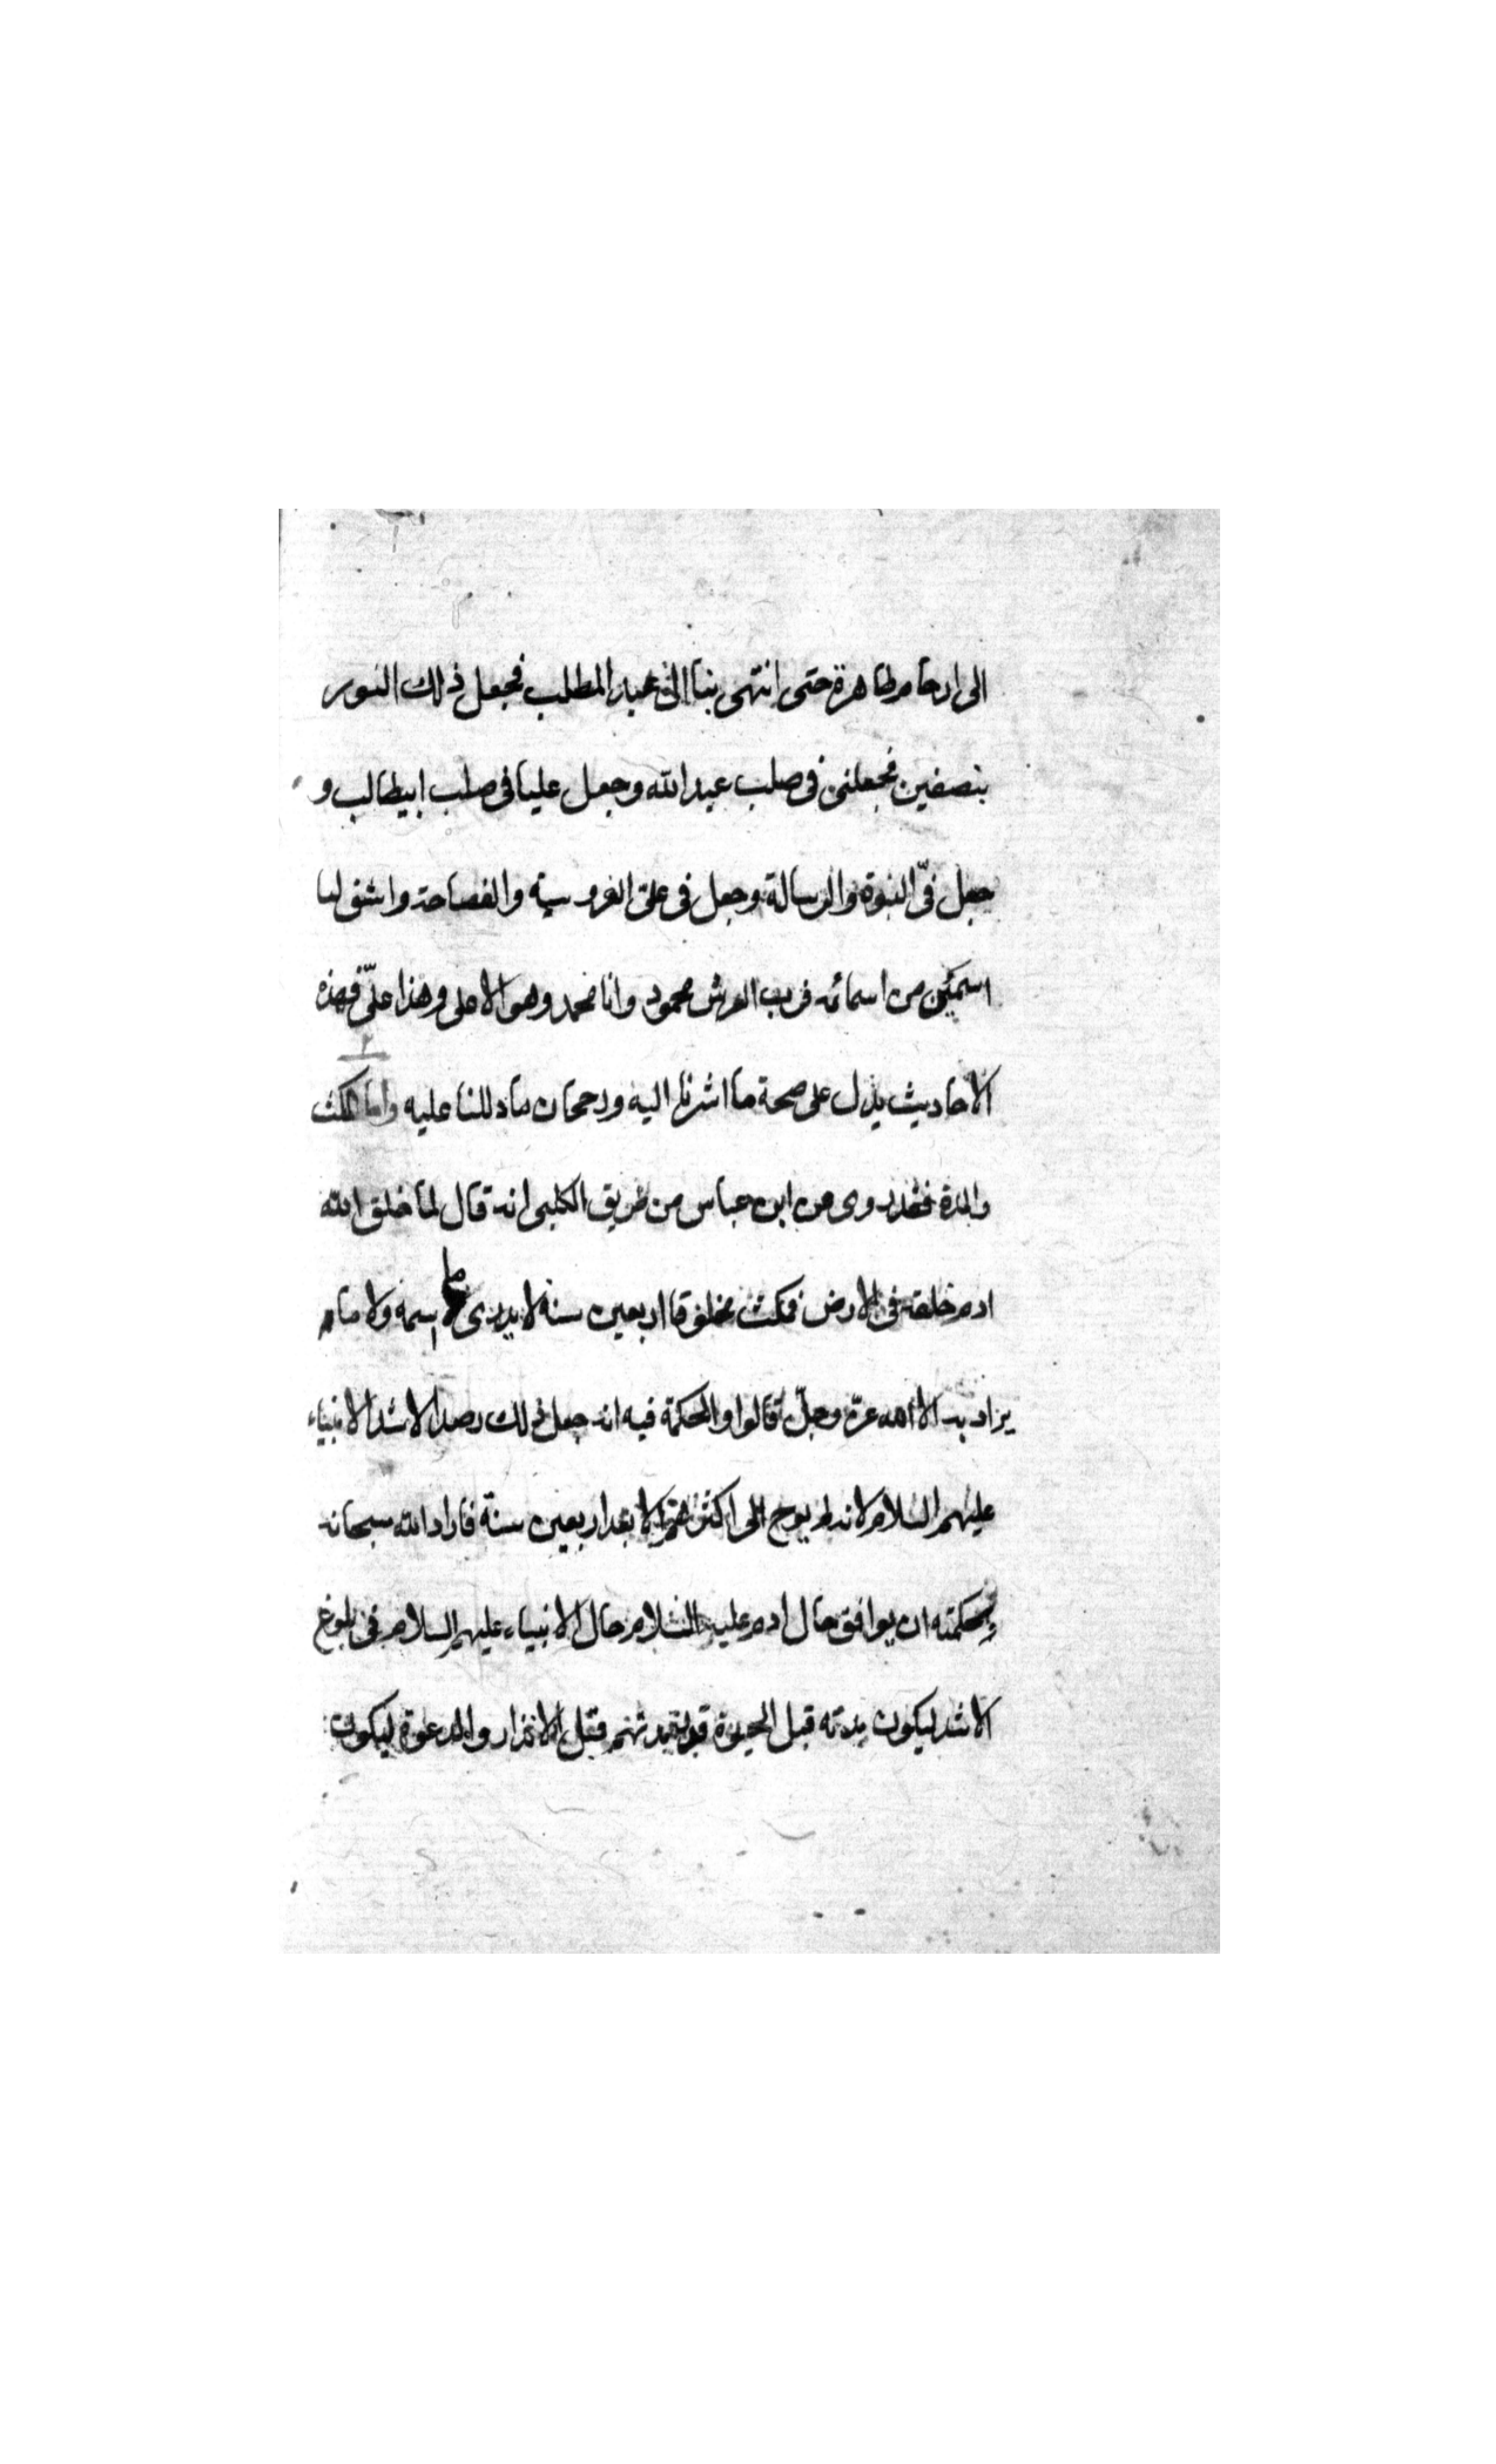 الى ارحام طاهرة حتى انتهى بنا الى عبد المطلب فجعل ذلك النور
بنصفين فجعلنى فى صلب عبد الله وجعل عليا فى صلب ابيطالب و
جعل فىّ النبوة والرسالة وجعل فى على الفروسية والفصاحة واشتق لنا
اسمين من اسمائه فرب العرش محمود وانا محمد وهو الاعلى وهذا علىّ فهذه
الاحاديث يدل على صحة ما اشرنا اليه ورجحان ما دللنا عليه واما المكث
والمدة فقد روى عن ابن عباس من طريق الكلبى انه قال لما خلق الله
ادم خلقه فى الارض فمكث مخلوقا اربعين سنة لا يدرى ما اسمه ولا ما
يراد به الا الله عزّ وجلّ قالوا والحكمة فيه انه جعل ذلك رصدا لاشد الانبياء
عليهم السلام لانه لم يوح الى اكثرهم الا بعد اربعين سنة فاراد الله سبحانه
بحكمته ان يوافق حال ادم عليه السلام حال الانبياء عليهم السلام فى بلوغ
الاشد ليكون مدته قبل الحيوة قبل الانذار والدعوة ليكون